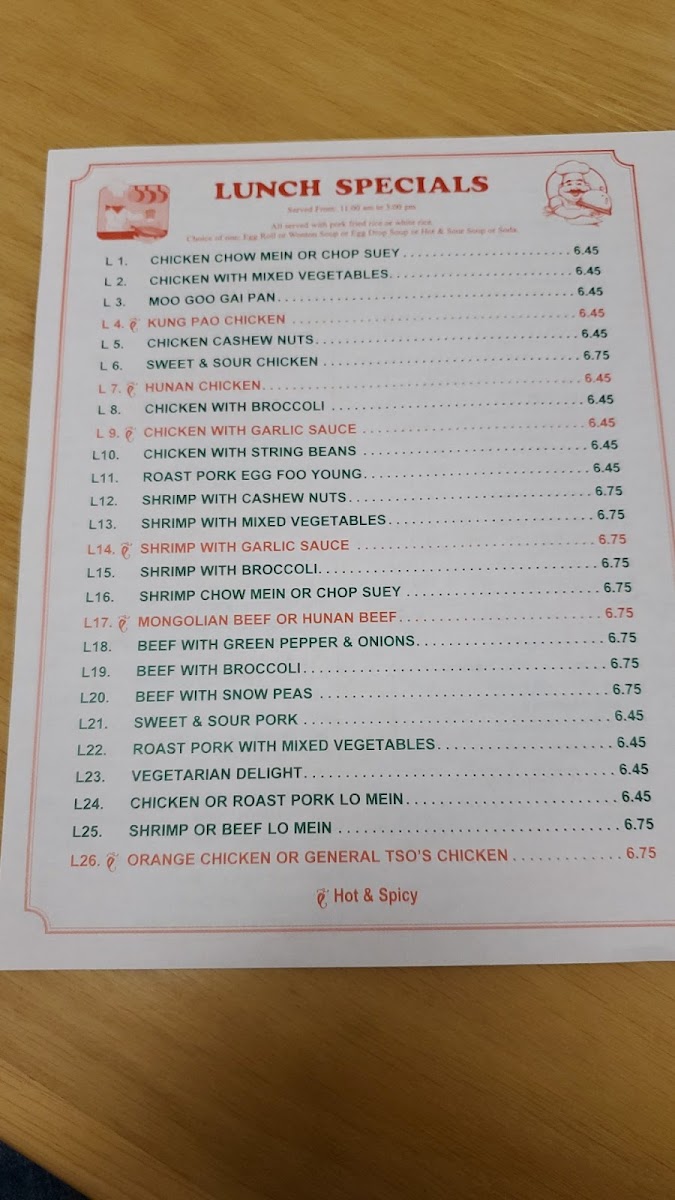 LUNCH SPECIALS
Served From: 11:00 am to 3:00 pm
All served with pork fried rice or white rice
Choice of one: Egg Roll or Wonton Soup or Egg Drop Soup or Hot & Sour Soup or Soda.
L 1. CHICKEN CHOW MEIN OR CHOP SUEY 6.45
L 2. CHICKEN WITH MIXED VEGETABLES 6.45
L 3. MOO GOO GAI PAN 6.45
L 4. KUNG PAO CHICKEN 6.45
L 5. CHICKEN CASHEW NUTS 6.45
L 6. SWEET & SOUR CHICKEN 6.75
L 7. HUNAN CHICKEN 6.45
L 8. CHICKEN WITH BROCCOLI 6.45
L 9. CHICKEN WITH GARLIC SAUCE 6.45
L10. CHICKEN WITH STRING BEANS 6.45
L11. ROAST PORK EGG FOO YOUNG 6.45
L12. SHRIMP WITH CASHEW NUTS 6.75
L13. SHRIMP WITH MIXED VEGETABLES 6.75
L14. SHRIMP WITH GARLIC SAUCE 6.75
L15. SHRIMP WITH BROCCOLI 6.75
L16. SHRIMP CHOW MEIN OR CHOP SUEY 6.75
L17. MONGOLIAN BEEF OR HUNAN BEEF 6.75
L18. BEEF WITH GREEN PEPPER & ONIONS 6.75
L19. BEEF WITH BROCCOLI 6.75
L20. BEEF WITH SNOW PEAS 6.75
L21. SWEET & SOUR PORK 6.45
L22. ROAST PORK WITH MIXED VEGETABLES 6.45
L23. VEGETARIAN DELIGHT 6.45
L24. CHICKEN OR ROAST PORK LO MEIN 6.45
L25. SHRIMP OR BEEF LO MEIN 6.75
L26. ORANGE CHICKEN OR GENERAL TSO'S CHICKEN 6.75
Hot & Spicy